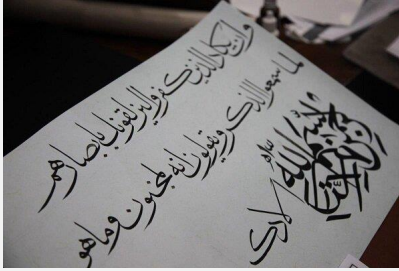 وان يكاد الذين كفروا ليزلقونك بابصارهم
لما سمعوا الذكر ويقولون انه لمجنون وما هو
بسم الله الرحمن الرحيم